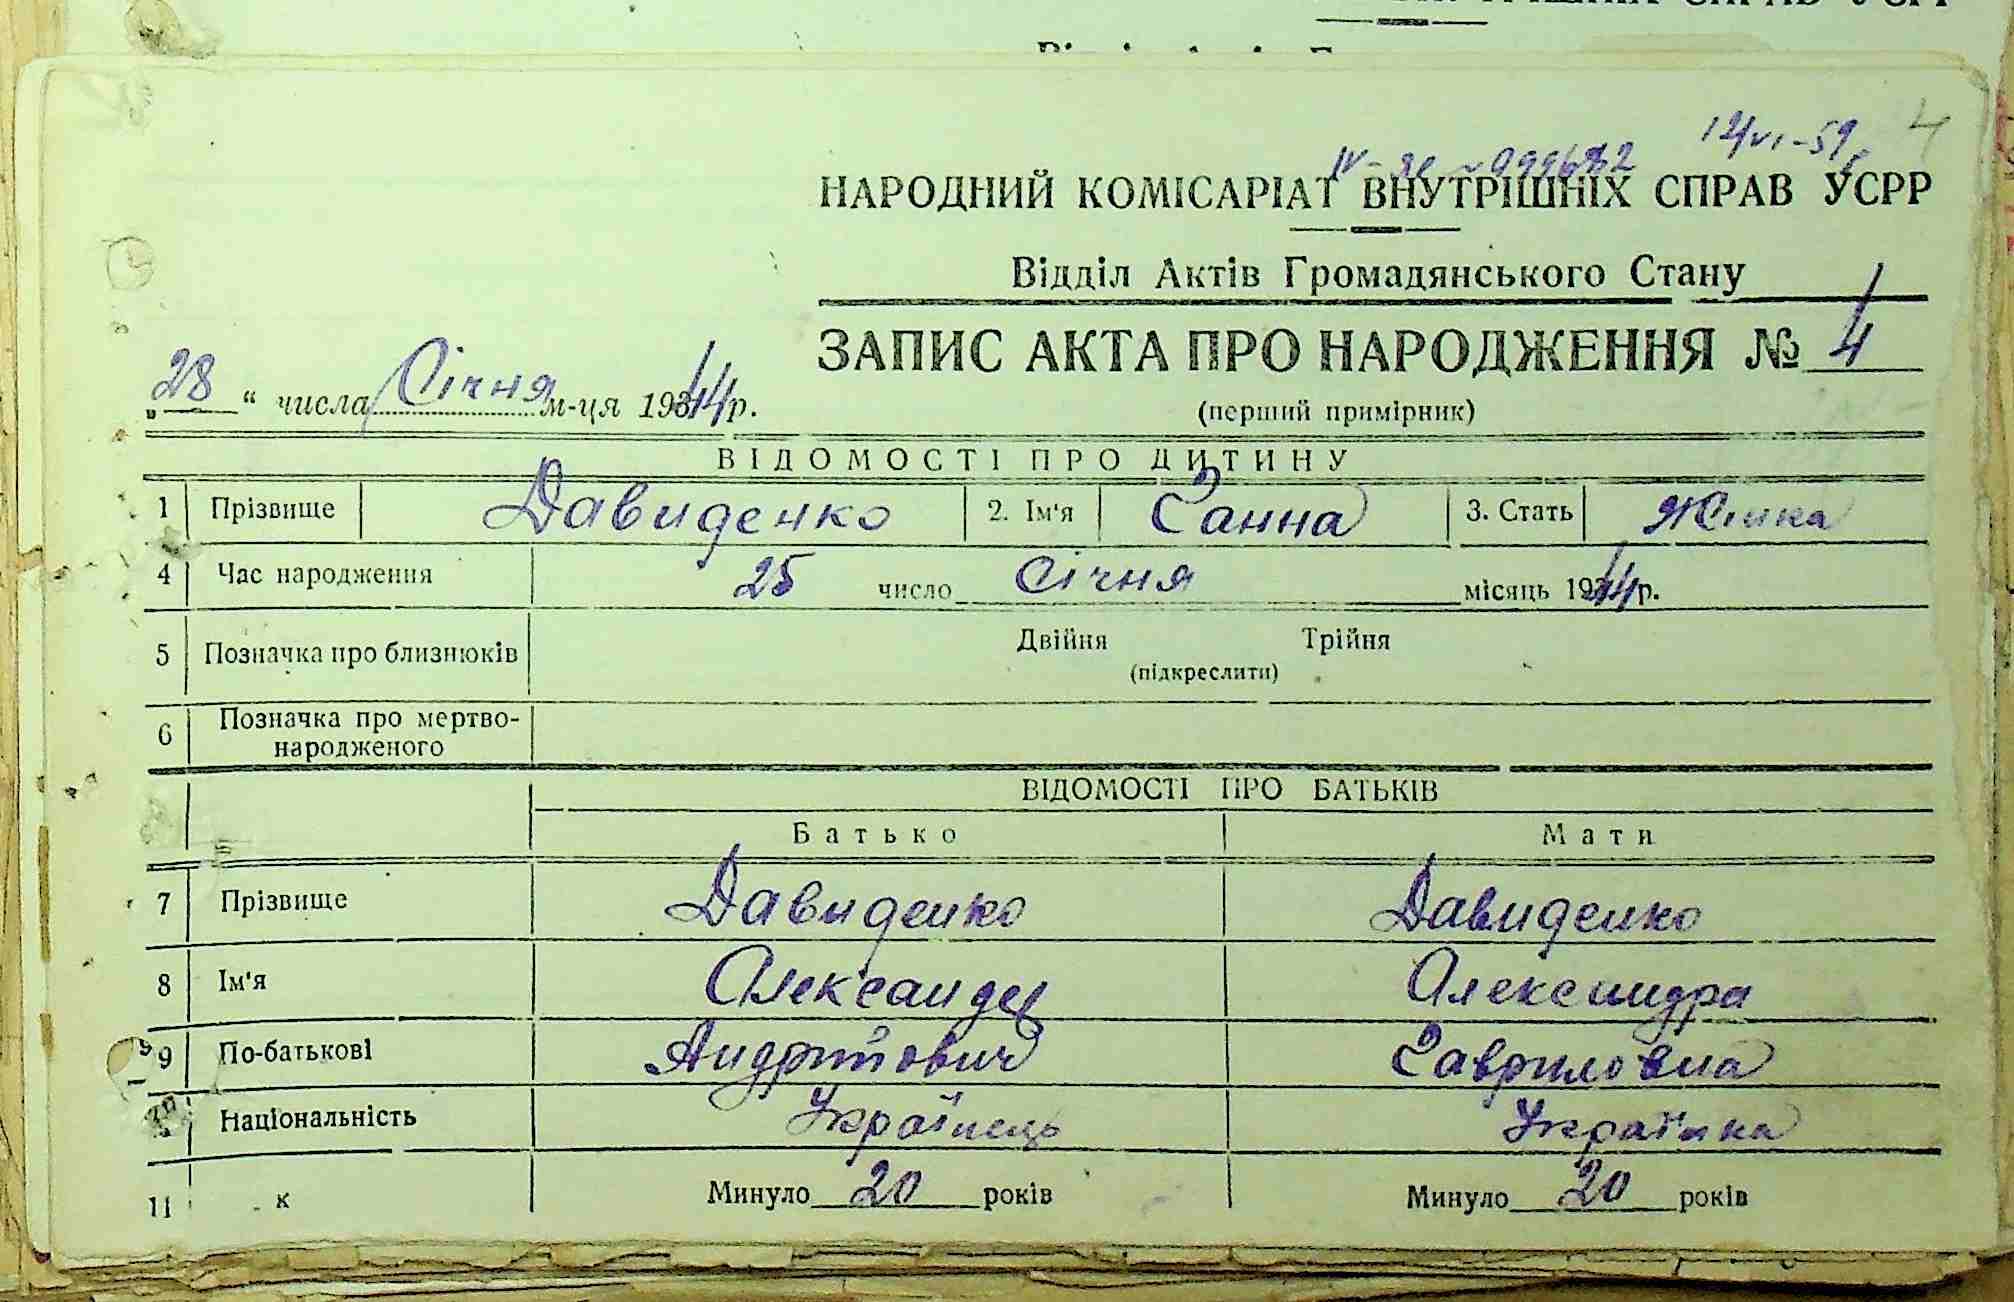 12/VI-59 4
НАРОДНИЙ КОМІСАРІАТ ВНУТРІШНІХ СПРАВ УСРР
Відділ Актів Громадянського Стану
ЗАПИС АКТА ПРО НАРОДЖЕННЯ № 4
„28“ числа Січня м-ця 1944 р.
(перший примірник)
ВІДОМОСТІ ПРО ДИТИНУ
1 Прізвище Давиденко 2. Ім'я Ганна 3. Стать Жінка
4 Час народження 25 число Січня місяць 1944 р.
5 Позначка про близнюків Двійня Трійня
(підкреслити)
6 Позначка про мертво-
народженого
ВІДОМОСТІ ПРО БАТЬКІВ
Батько Мати
7 Прізвище Давиденко Давиденко
8 Ім'я Александр Александра
9 По-батькові Андрійович Гавриловна
Національність Українець Українка
11 к Минуло 20 років Минуло 20 років